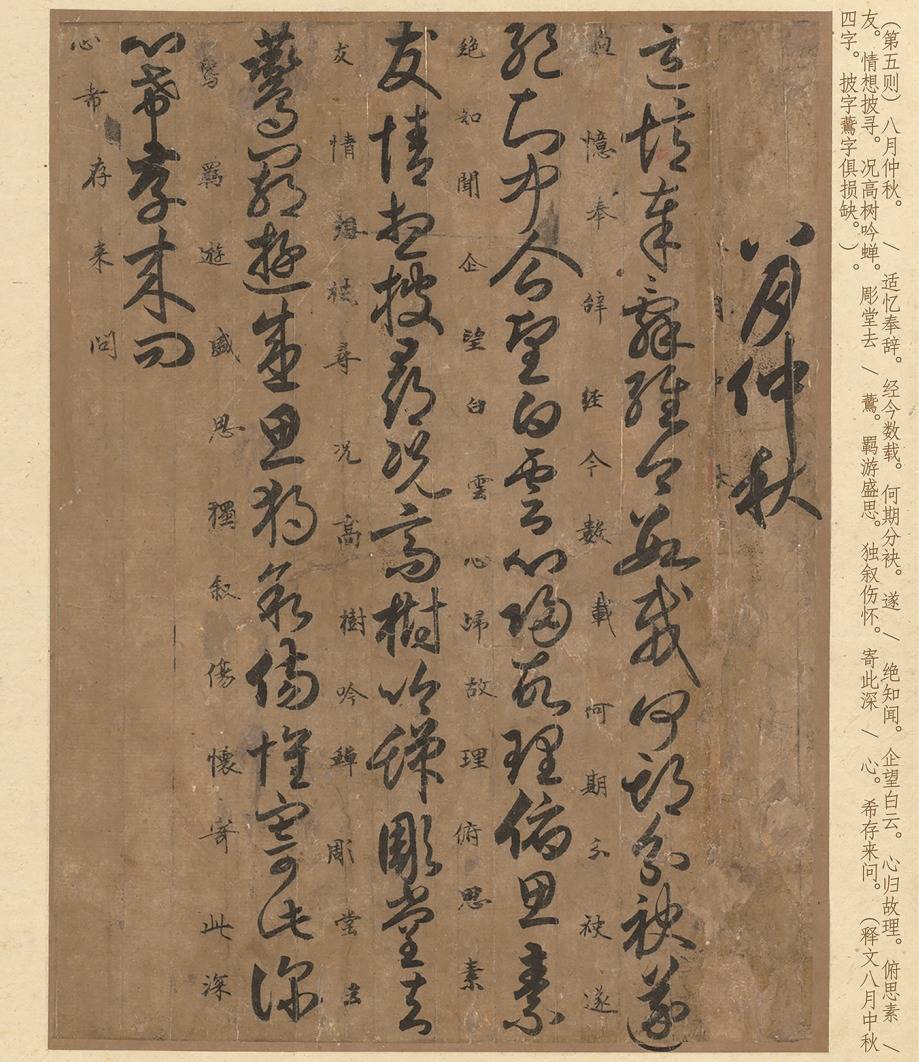 （第五则）八月仲秋。/适忆奉辞。经今数载。何期分袂。遂/绝知闻。企望白云。心归故理。俯思素/
友。情想披寻。况高树吟蝉。彫堂去/鷰。羁游盛思。独叙伤怀。寄此深/心。希存来问。（释文八月中秋
四字。披字鷰字俱损缺。）。
八月仲秋
月中
適憶奉辭經今數載何期分袂遂
憶奉辝経今數載何期分袂遂
絕知聞企望白雲心歸故理俯思素
絕知聞企望白雲心歸故理俯思素
友情想披尋況高樹吟蟬彫堂去
友情想尋况高樹吟蟬彫堂去
鷰羈遊盛思獨叙傷懷寄此深
羇遊盛思獨叙傷懷寄此深
心希存來問
心希存来問